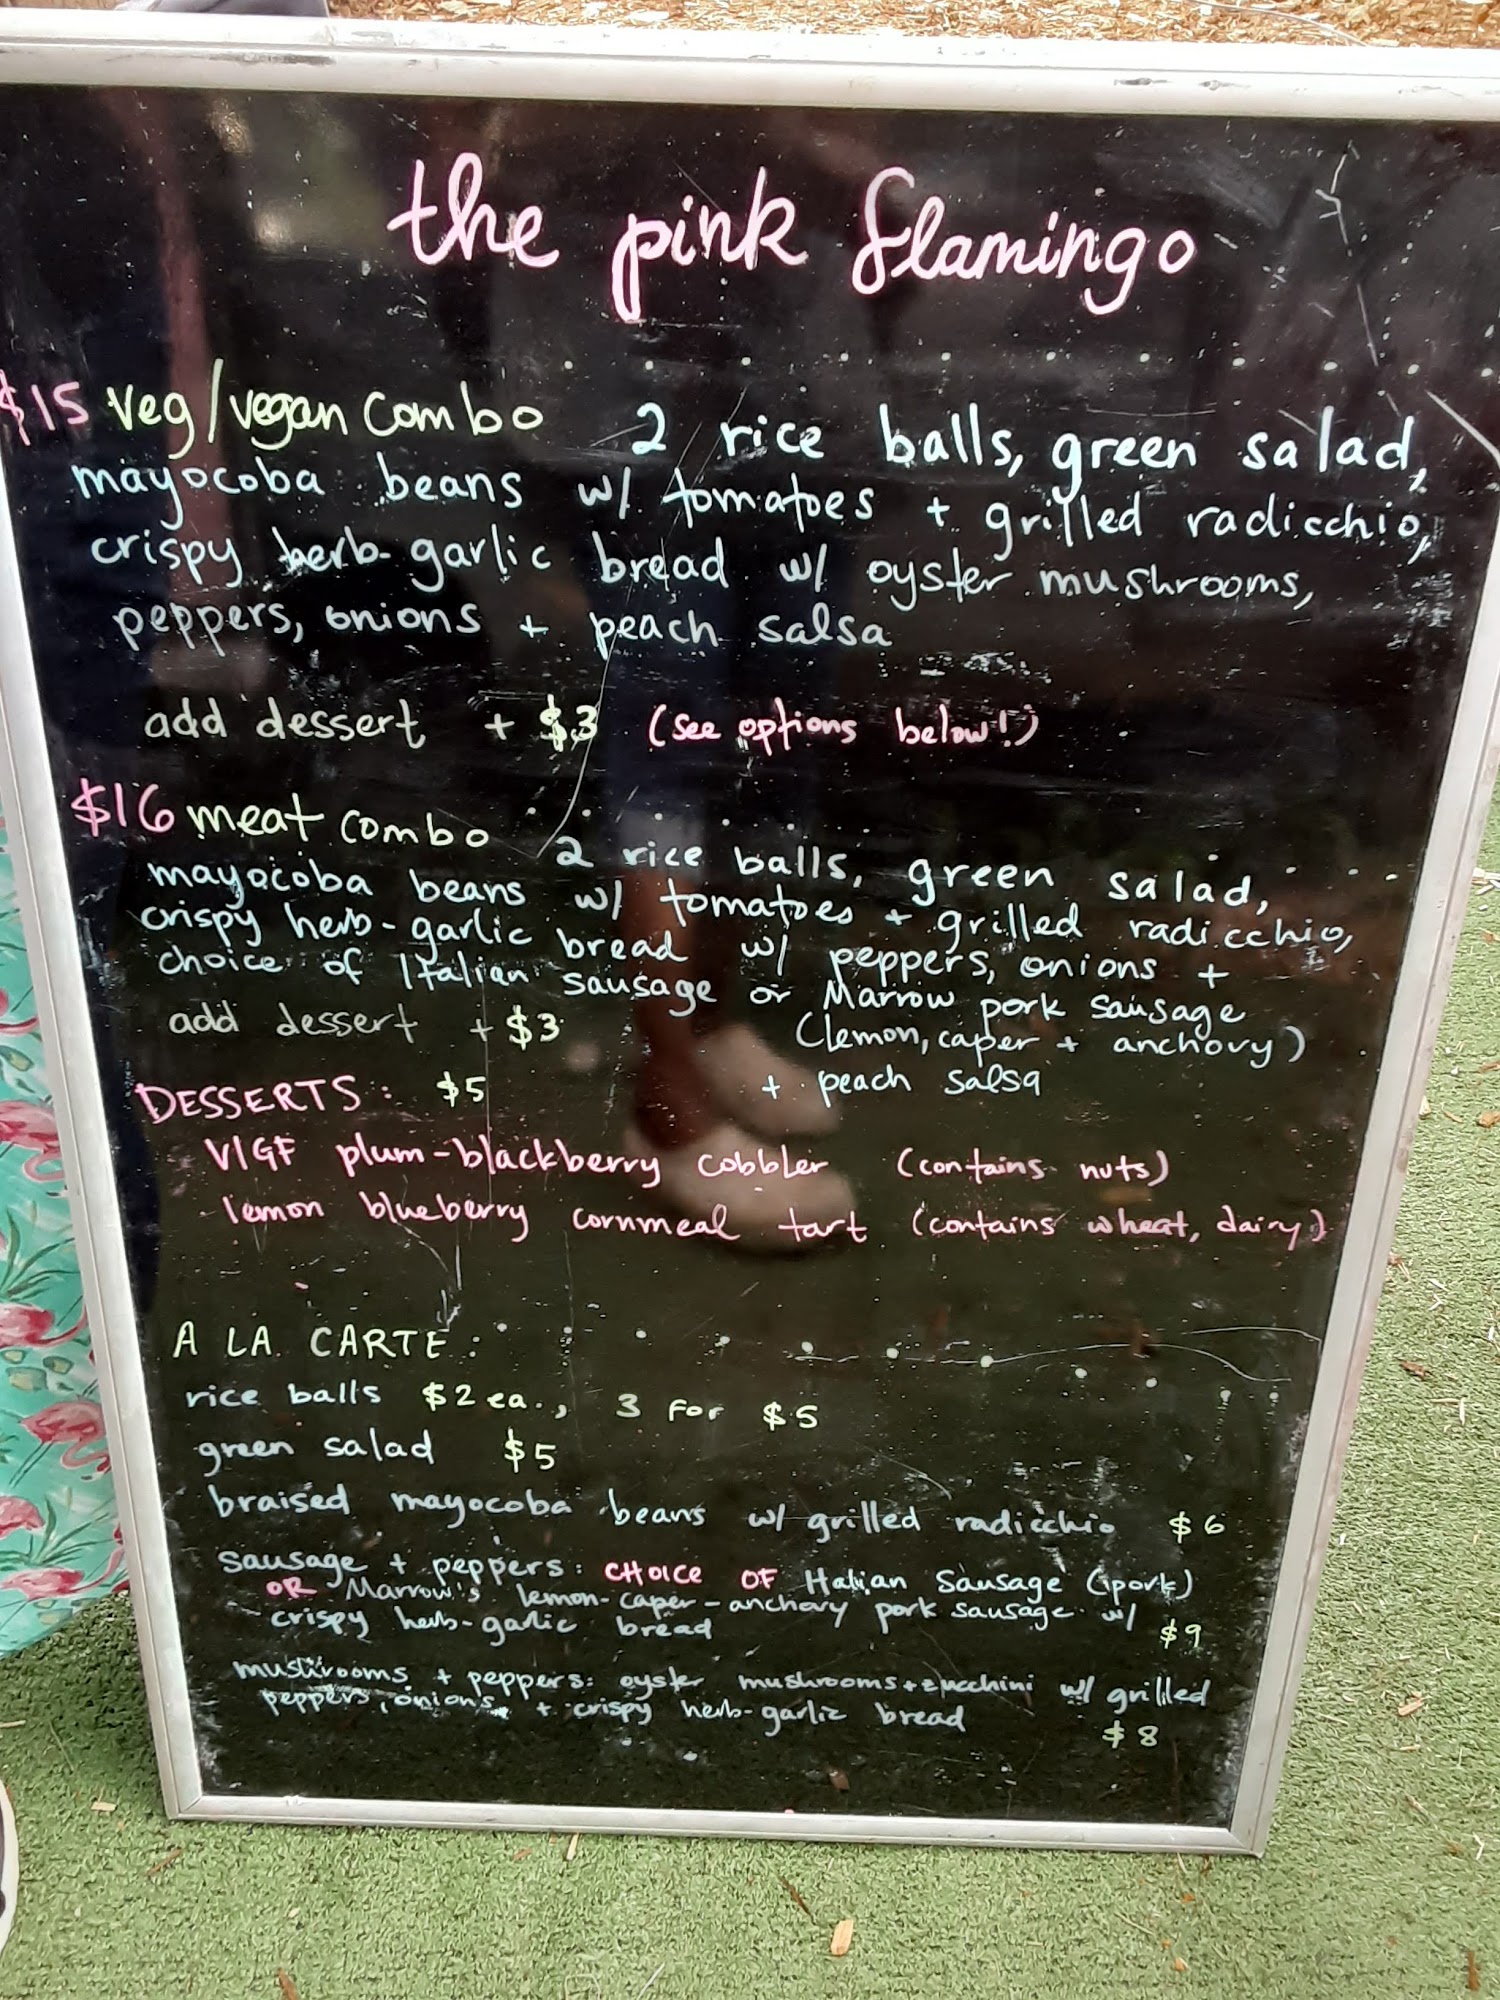 the pink flamingo
$15 veg/vegan combo 2 rice balls, green salad,
mayocoba beans w/ tomatoes + grilled radicchio,
crispy herb-garlic bread w/ oyster mushrooms,
peppers, onions + peach salsa
add dessert + $3 (see options below!)
$16 meat combo 2 rice balls, green salad,
mayocoba beans w/ tomatoes + grilled radicchio,
crispy herb-garlic bread w/ peppers, onions +
choice of Italian sausage or Marrow pork sausage
(lemon, caper + anchovy)
add dessert + $3
+ peach salsa
DESSERTS: $5
V/GF plum-blackberry cobbler (contains nuts)
lemon blueberry cornmeal tart (contains wheat, dairy)
A LA CARTE:
rice balls $2 ea., 3 for $5
green salad $5
braised mayocoba beans w/ grilled radicchio $6
sausage + peppers: CHOICE OF Italian Sausage (pork)
OR Marrow's lemon-caper-anchovy pork sausage w/
crispy herb-garlic bread $9
mushrooms + peppers: oyster mushrooms + zucchini w/ grilled
peppers, onions + crispy herb-garlic bread
$8